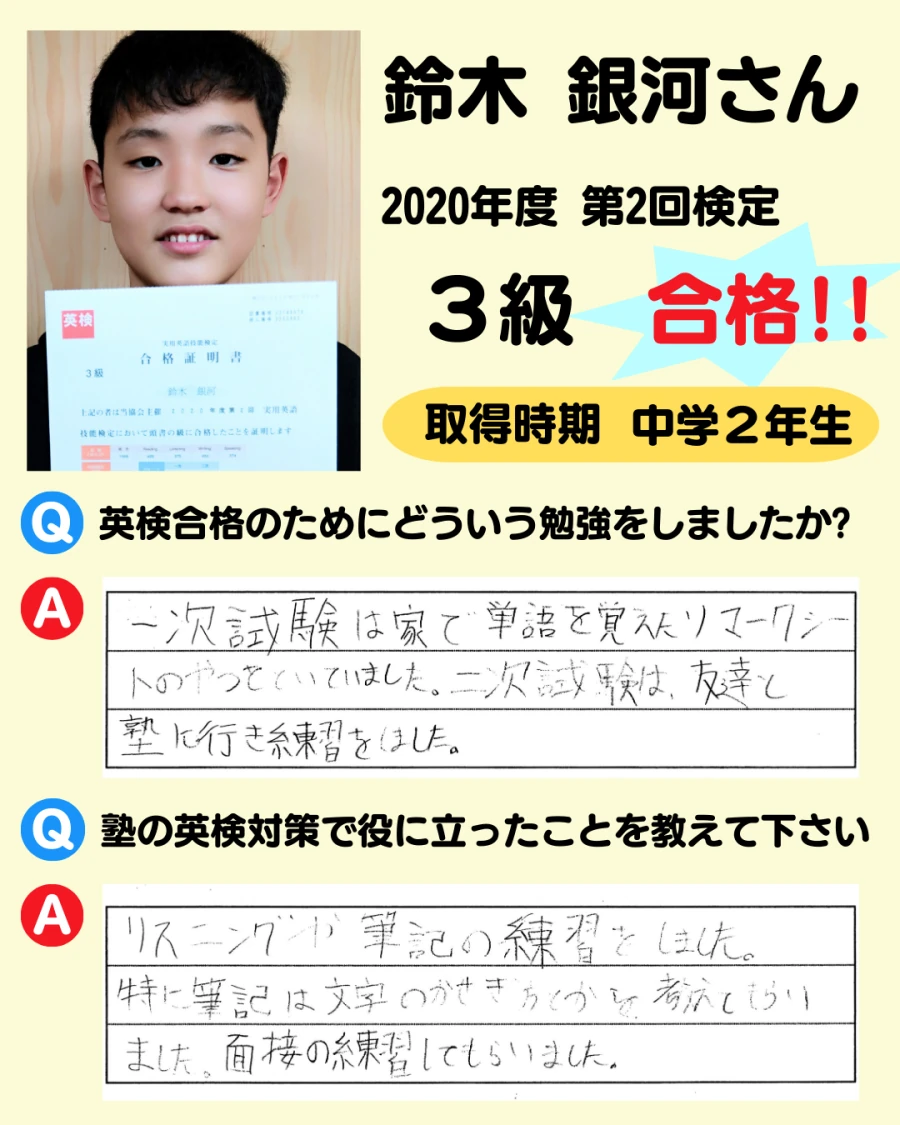 鈴木 銀河さん
2020年度 第2回検定
3級 合格!!
取得時期 中学2年生
英検
実用英語技能検定
合格証明書
3級
鈴木 銀河
上記の者は当協会主催 2020年度第2回 実用英語
技能検定において頭書の級に合格したことを証明します
Q 英検合格のためにどういう勉強をしましたか?
A 一次試験は家で単語を覚えたりマークシー
トのやつをといていました。二次試験は、友達と
塾に行き練習をしました。
Q 塾の英検対策で役に立ったことを教えて下さい
A リスニングや筆記の練習をしました。
特に筆記は文字のかせぎかたとかを考えてもらい
ました。面接の練習してもらいました。